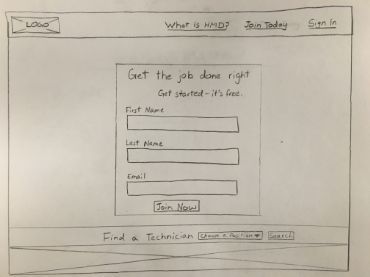 LOGO
What is HMD? Join Today Sign In
Get the job done right
Get started - it's free.
First Name
Last Name
Email
Join Now
Find a Technician Choose a Position Search